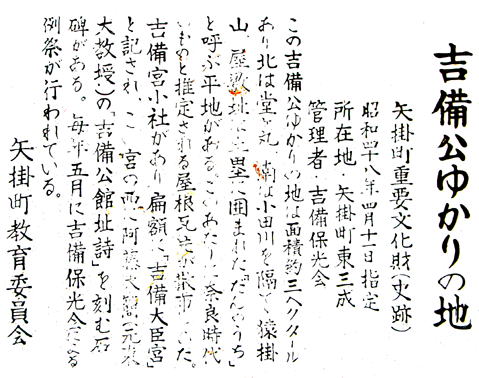 吉備公ゆかりの地
矢掛町重要文化財(史跡)
昭和四十八年四月十一日指定
所在地・矢掛町東三成
管理者・吉備保光会
この吉備公ゆかりの地は面積約三ヘクタール
あり北は堂ヶ丸、南は小田川を隔て猿掛
山、屋敷址は土塁に囲まれた「だんのうち」
と呼ぶ平地がある。このあたりに奈良時代
のものと推定される屋根瓦が散布していた。
吉備宮小社があり扁額に「吉備大臣宮」
と記され、この宮の西に阿藤大簡(元東
大教授)の「吉備公館址詩」を刻む石
碑がある。毎年五月に吉備保光会による
例祭が行われている。
矢掛町教育委員会